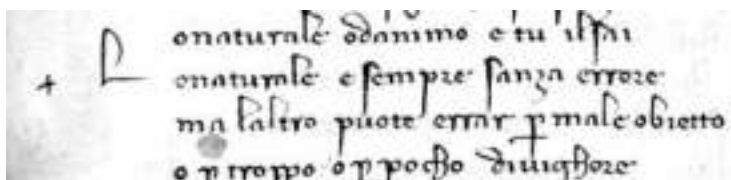 onaturale odanimo e tu ilsai
L onaturale e sempre sanza errore
ma laltro puote errar p male obietto
o p troppo o p pocho diuighore